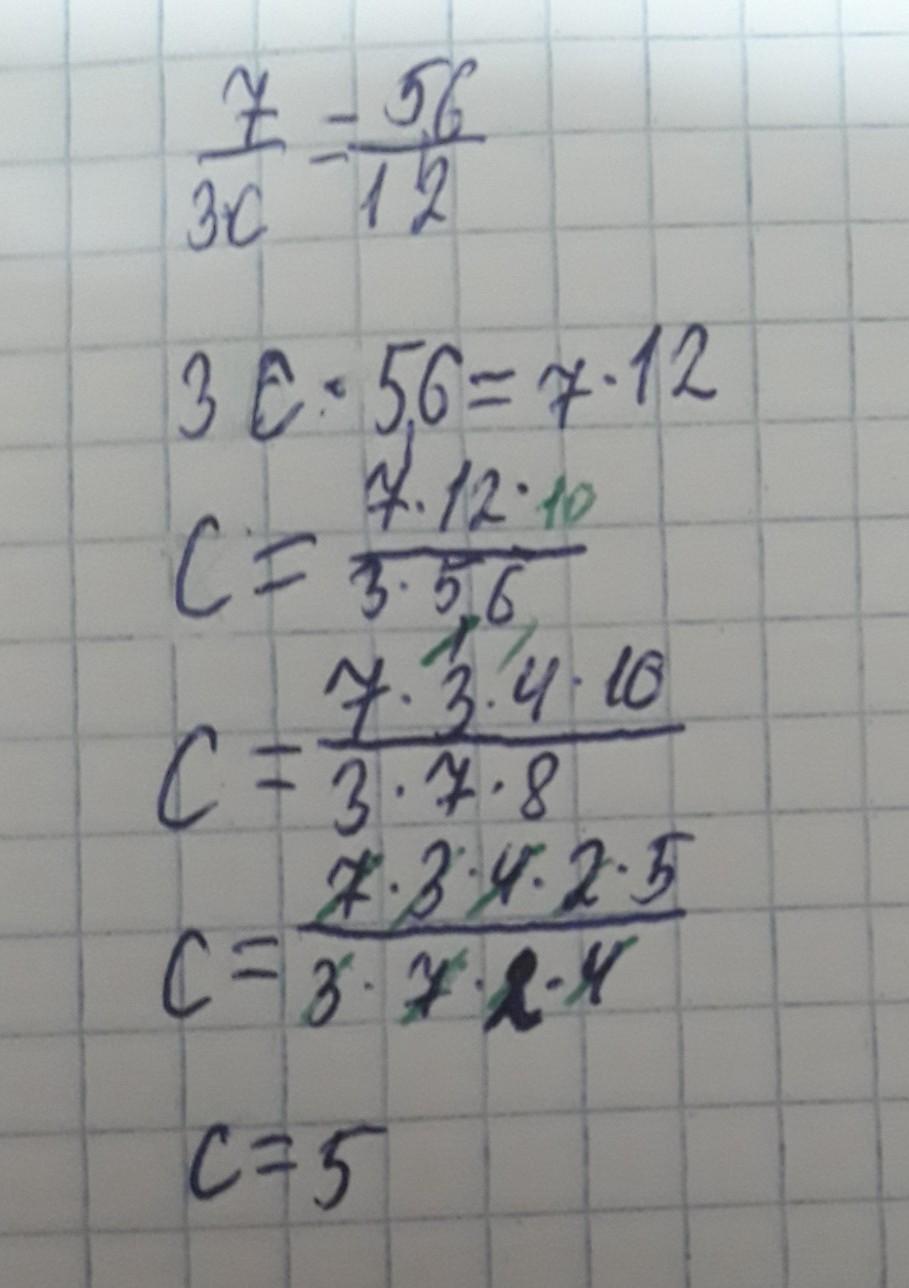 7/3c = 5,6/12
3 c · 5,6 = 7 · 12
c = 7 · 12 · 10/3 · 5,6
c = 7 · 3 · 4 · 10/3 · 7 · 8
c = 7 · 3 · 4 · 2 · 5/3 · 7 · 2 · 4
c = 5